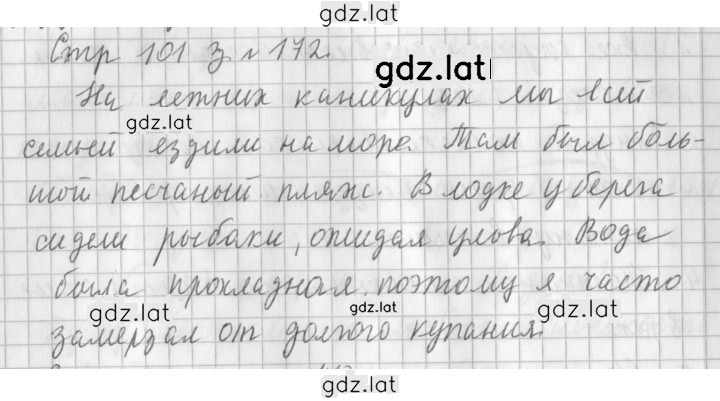 gdz.lat
Стр 101 з. 172.
gdz.lat
На летних каникулах мы всей
gdz.lat
семьей ездили на море. Там был боль-
шой песчаный пляж. В лодке у берега
сидели рыбаки, ожидая улова. Вода
была прохладная, поэтому я часто
gdz.lat gdz.lat
замерзал от долгого купания.
gdz.lat